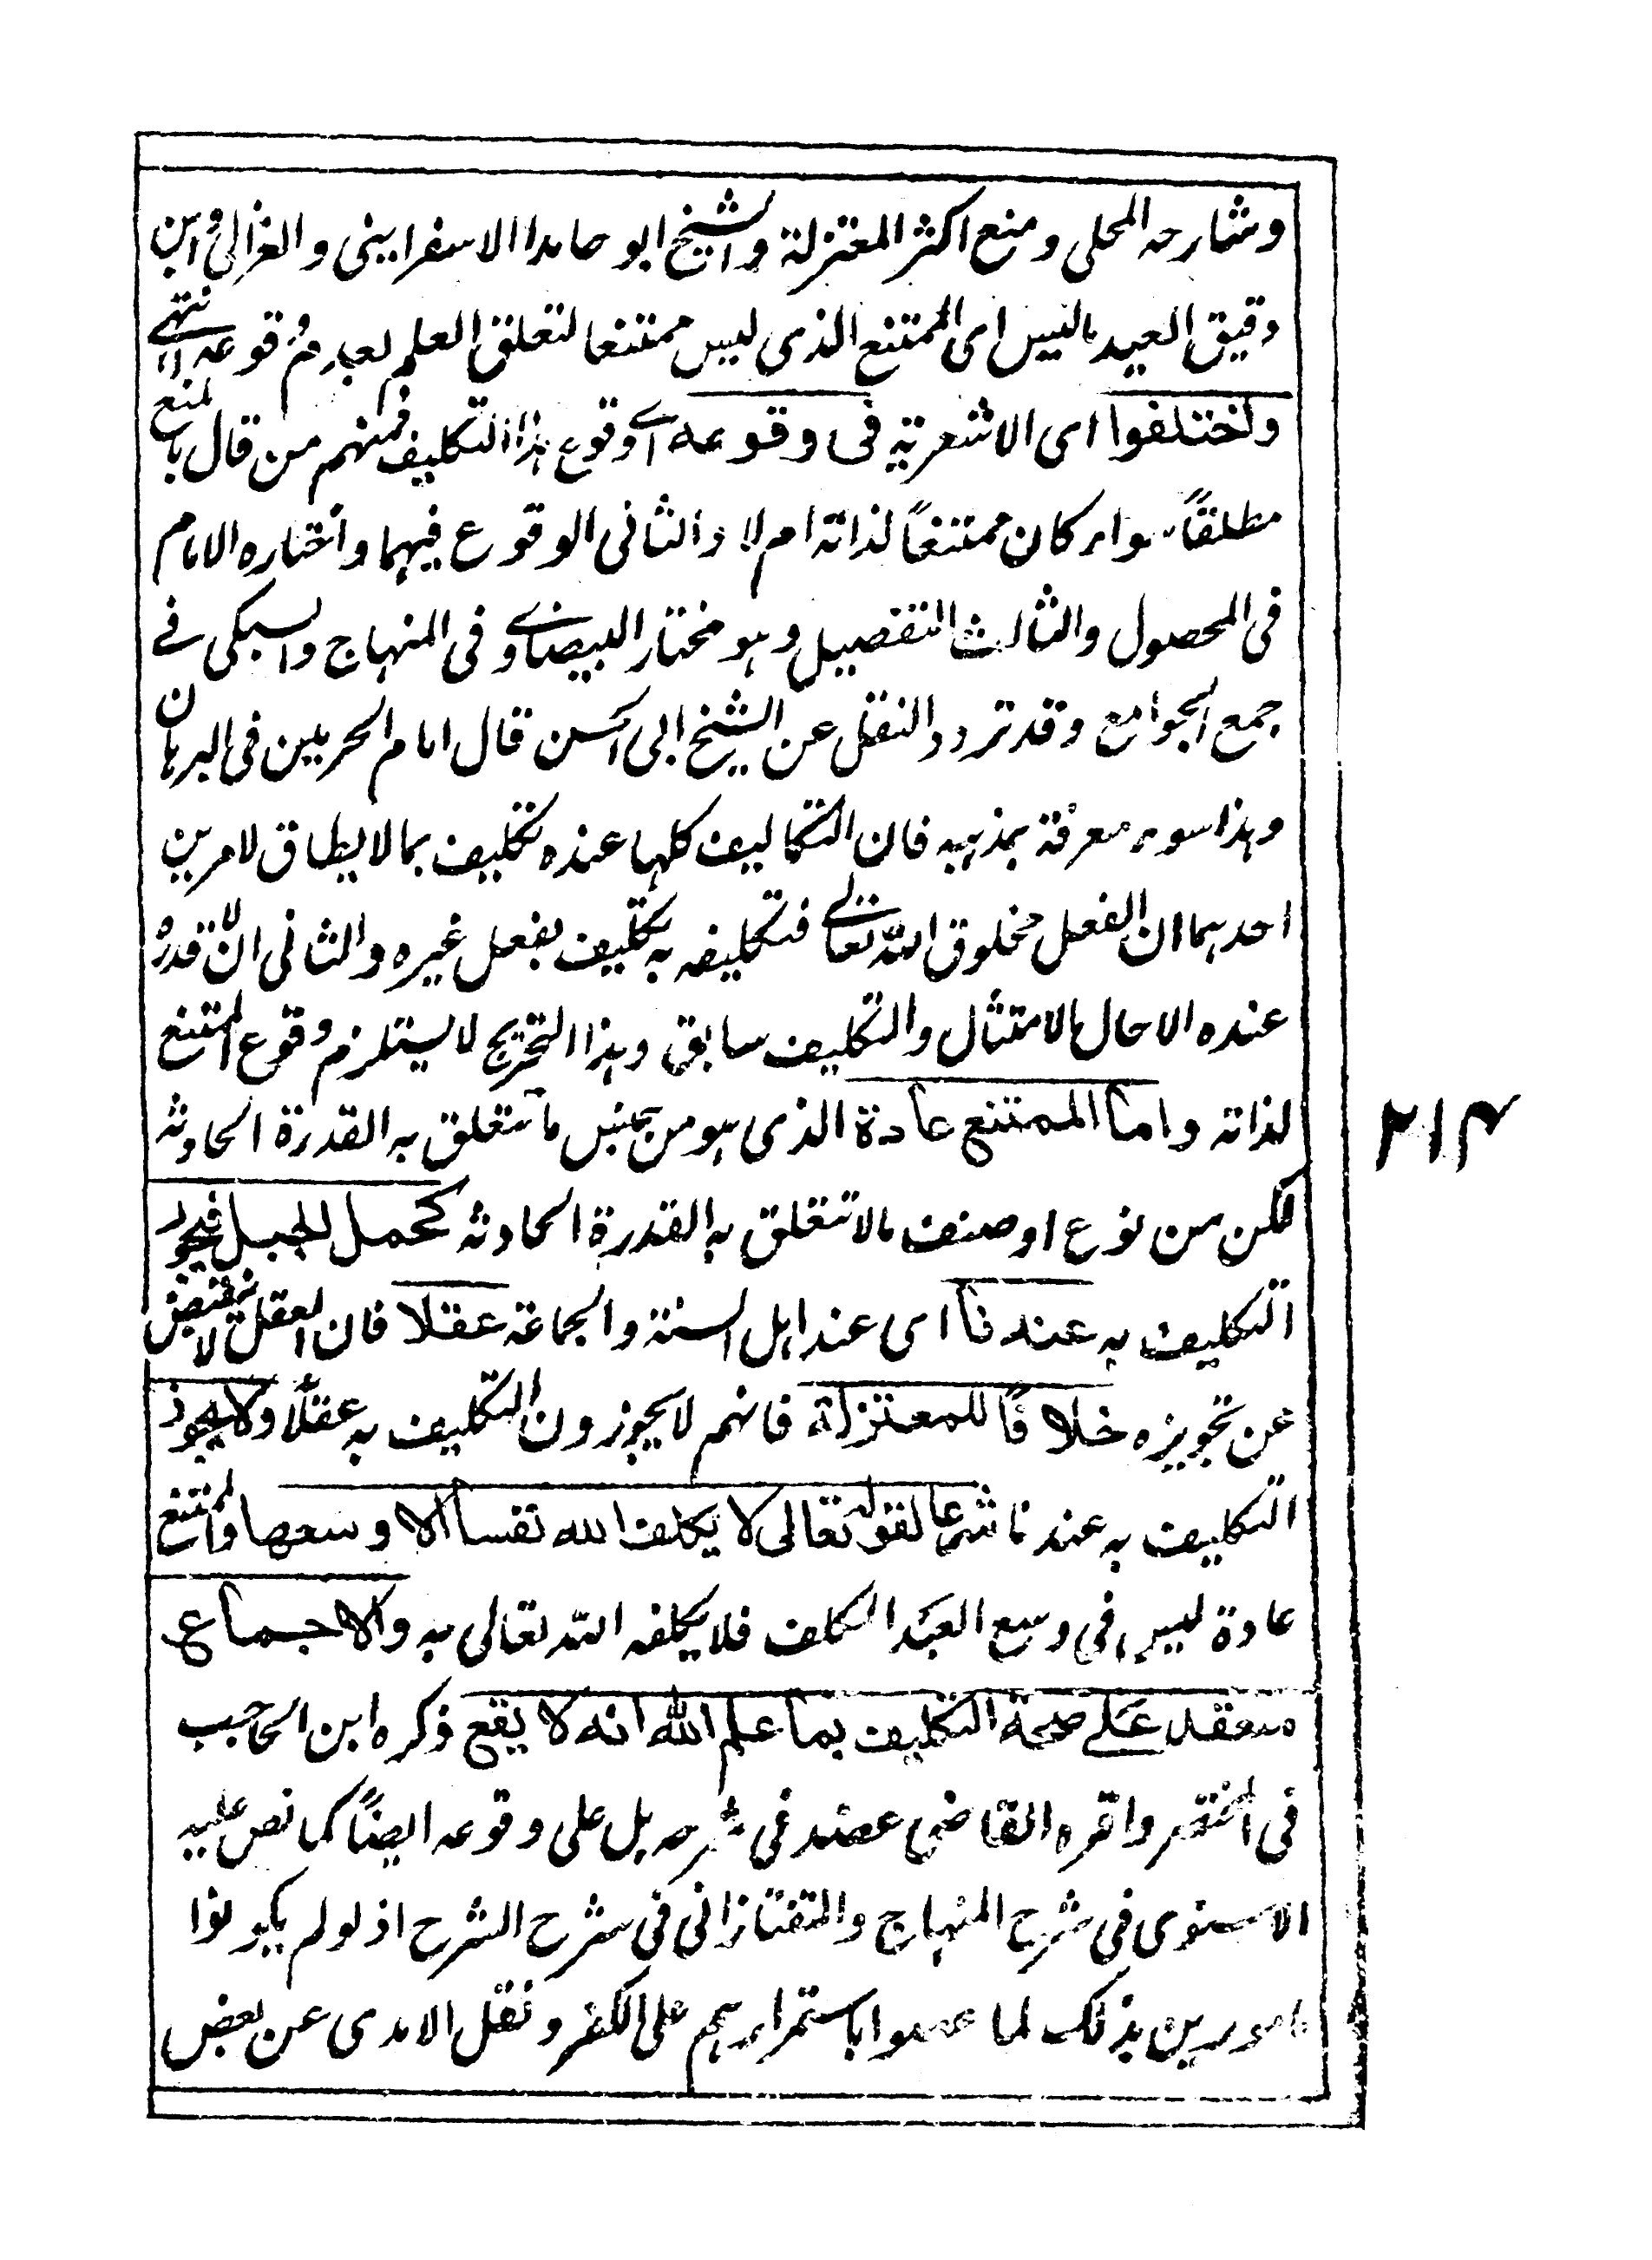 وشارحه المحلى ومنع اكثر المعتزلة والشيخ ابو حامدا الاسفراينى والغزالى وابن
دقيق العيد ماليس اى الممتنع الذى ليس ممتنعا لتعلق العلم بعدم وقوعه انتهى
واختلفوا اى الاشعرية فى وقوعه اے وقوع هذا التكليف فمنهم من قال بالمنع
مطلقاً سواء كان ممتنعاً لذاته ام لا والثانى الوقوع فيهما واختاره الامام
فى المحصول والثالث التفصيل وهو مختار البيضاوے فى المنهاج والسبكى فے
جمع الجوامع وقد تردد النقل عن الشيخ ابى الحسن قال امام الحرمين فى البرهان
وهذا سوء معرفة بمذهبه فان التكاليف كلها عنده تكليف بما لا يطاق لامرين
احدهما ان الفعل مخلوق الله تعالے فتكليفه به تكليف بفعل غيره والثانى انه لا قدرة
عنده الا حال الامتثال والتكليف سابق وهذا التخريج لا يستلزم وقوع الممتنع
لذاته واما الممتنع عادة الذى هو من جنس ما تتعلق به القدرة الحادثه
لكن من نوع او صنف ما لا تتعلق به القدرة الحادثه كحمل الجبل فيجوز
التكليف به عندنا اى عند اهل السنة والجماعة عقلا فان العقل لا ينقبض
عن تجويزه خلافاً للمعتزلة فانهم لا يجوزون التكليف به عقلاً ولا يجوز
التكليف به عندنا شرعا لقوله تعالى لا يكلف الله نفسا الا وسعها والممتنع
عادة ليس فى وسع العبد المكلف فلا يكلفه الله تعالى به والاجماع
منعقد علے صحة التكليف بما علم الله انه لا يقع ذكره ابن الحاجب
فى المختصر واقره القاضى عضد فى شرحه بل على وقوعه ايضاً كما نص عليه
الاسنوى فى شرح المنهاج والتفتازانى فى شرح الشرح اذ لو لم يكونوا
مامورين بذلك لما عصوا باستمرارهم على الكفر ونقل الامدى عن بعض
٢١٤